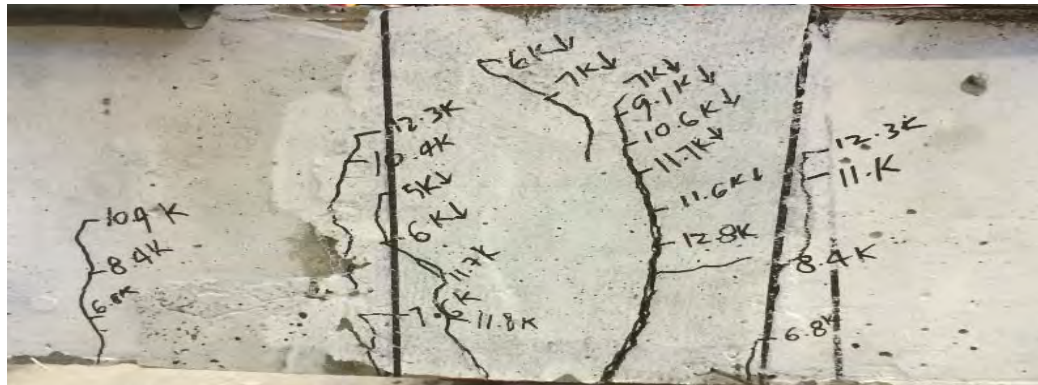 10.9 K
8.4K
6.8K
12.3K
10.4K
5K↓
6K↓
11.7K
7.6K
11.8K
6K↓
7K↓
7K↓
9.1K↓
10.6K↓
11.7K↓
11.6K↓
12.8K
12.3K
11.K
8.4K
6.8K